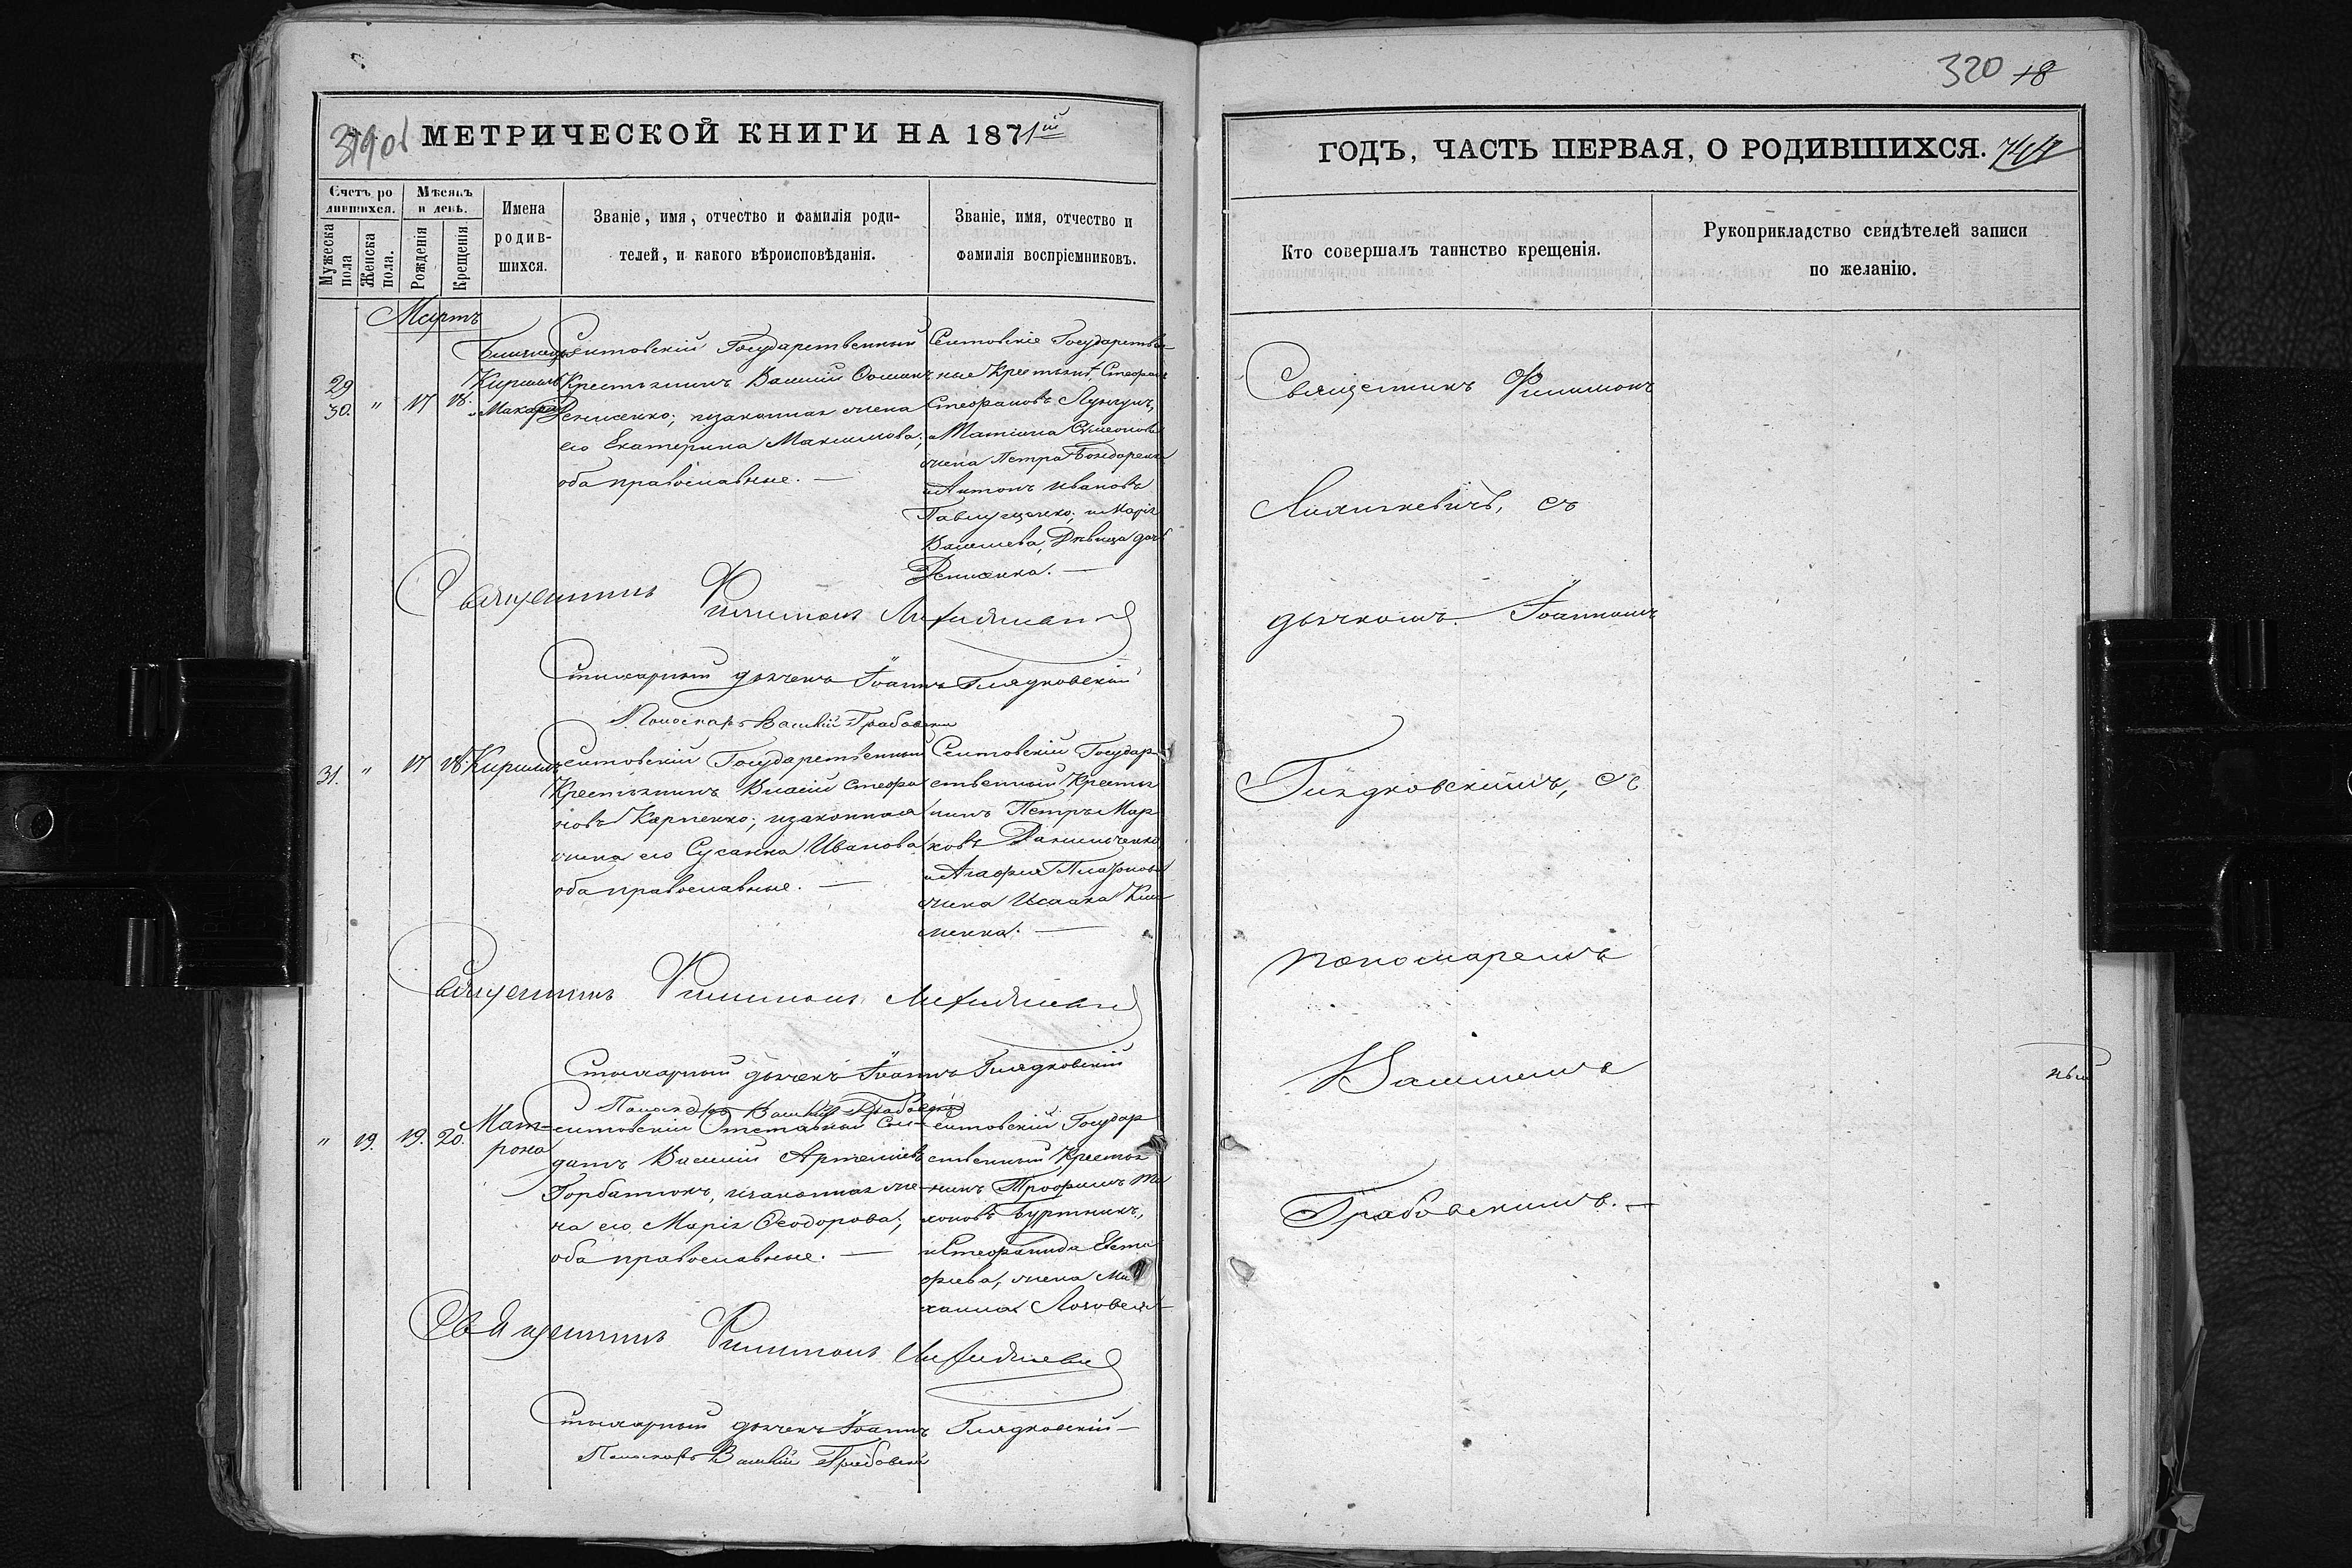 МЕТРИЧЕСКОЙ КНИГИ НА 1871й
Счетъ родившихся.
Мужеска пола
Женска пола.
Мѣсяцъ и день.
Рожденія
Крещенія
Имена родившихся.
Званіе, имя, отчество и фамилія роди-
телей, и какого вѣроисповѣданія.
Званіе, имя, отчество и
фамилія воспріемниковъ.
Мартъ
29
30. " 17 18.
Близнецы
Кириллъ
и Макарій
Сентовскій Государственный
Крестьянинъ Василій
Денисенко; и законная жена
его Екатерина Максимова;
оба православные. —
Сентовскіе Государствен-
ные Крестьяне, Стефанъ
Стефановъ
и Татіана Симеонова
жена Петра Бондаренка
и Антонъ Ивановъ
Павлущенко; и Марія
Васильева, Дѣвица дочь
Денисенка. —
Священникъ Филимонъ
Стихарный дьячекъ Іоаннъ Глядковскій
Пономарь Василій Грабовскій
31. " 17 18. Кириллъ
Сентовскій Государственный
Крестьянинъ Власій Стефа-
новъ Карпенко; и законная
жена его Сусанна Иванова
оба православные. —
Сентовскій Государ-
ственный Крестья-
нинъ Петръ Мар-
ковъ Данильченко,
и Агафія Платонова
жена Исаака Кли-
менка. —
Священникъ Филимонъ
Стихарный дьячекъ Іоаннъ Глядковскій
Пономарь Василій Грабовскій
" 19. 19. 20. Мат-
рона
Сентовскій Отставный Сол-
датъ Василій Артеміевъ
Горбатюкъ, и законная же-
на его Марія Ѳеодорова;
оба православные. —
Сентовскій Государ-
ственный Крестья-
нинъ Трофимъ Ти-
хоновъ Буртникъ,
и Стефанида Евста-
фіева, жена Ми-
хаила
Священникъ Филимонъ
Стихарный дьячекъ Іоаннъ Глядковскій —
Пономарь Василій Грабовскій
320 18
ГОДЪ, ЧАСТЬ ПЕРВАЯ, О РОДИВШИХСЯ.
Кто совершалъ таинство крещенія.
Рукоприкладство свидѣтелей записи
по желанію.
Священникъ Филимонъ
съ
дьячкомъ Іоанномъ
Глядковскимъ, съ
пономаремъ
Василіемъ
Грабовскимъ. —